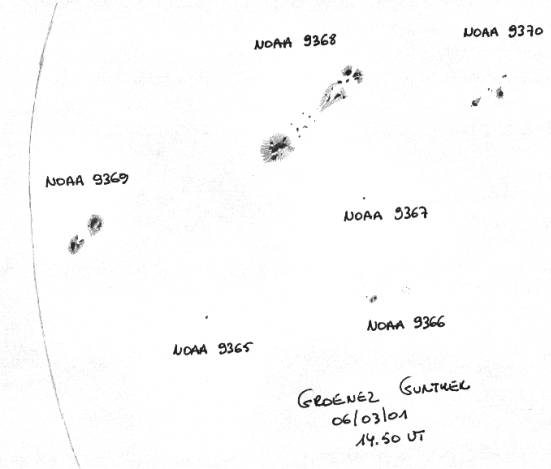 NOAA 9370
NOAA 9368
NOAA 9369
NOAA 9367
NOAA 9366
NOAA 9365
GROENEZ GUNTHER
06/03/01
14.50 UT